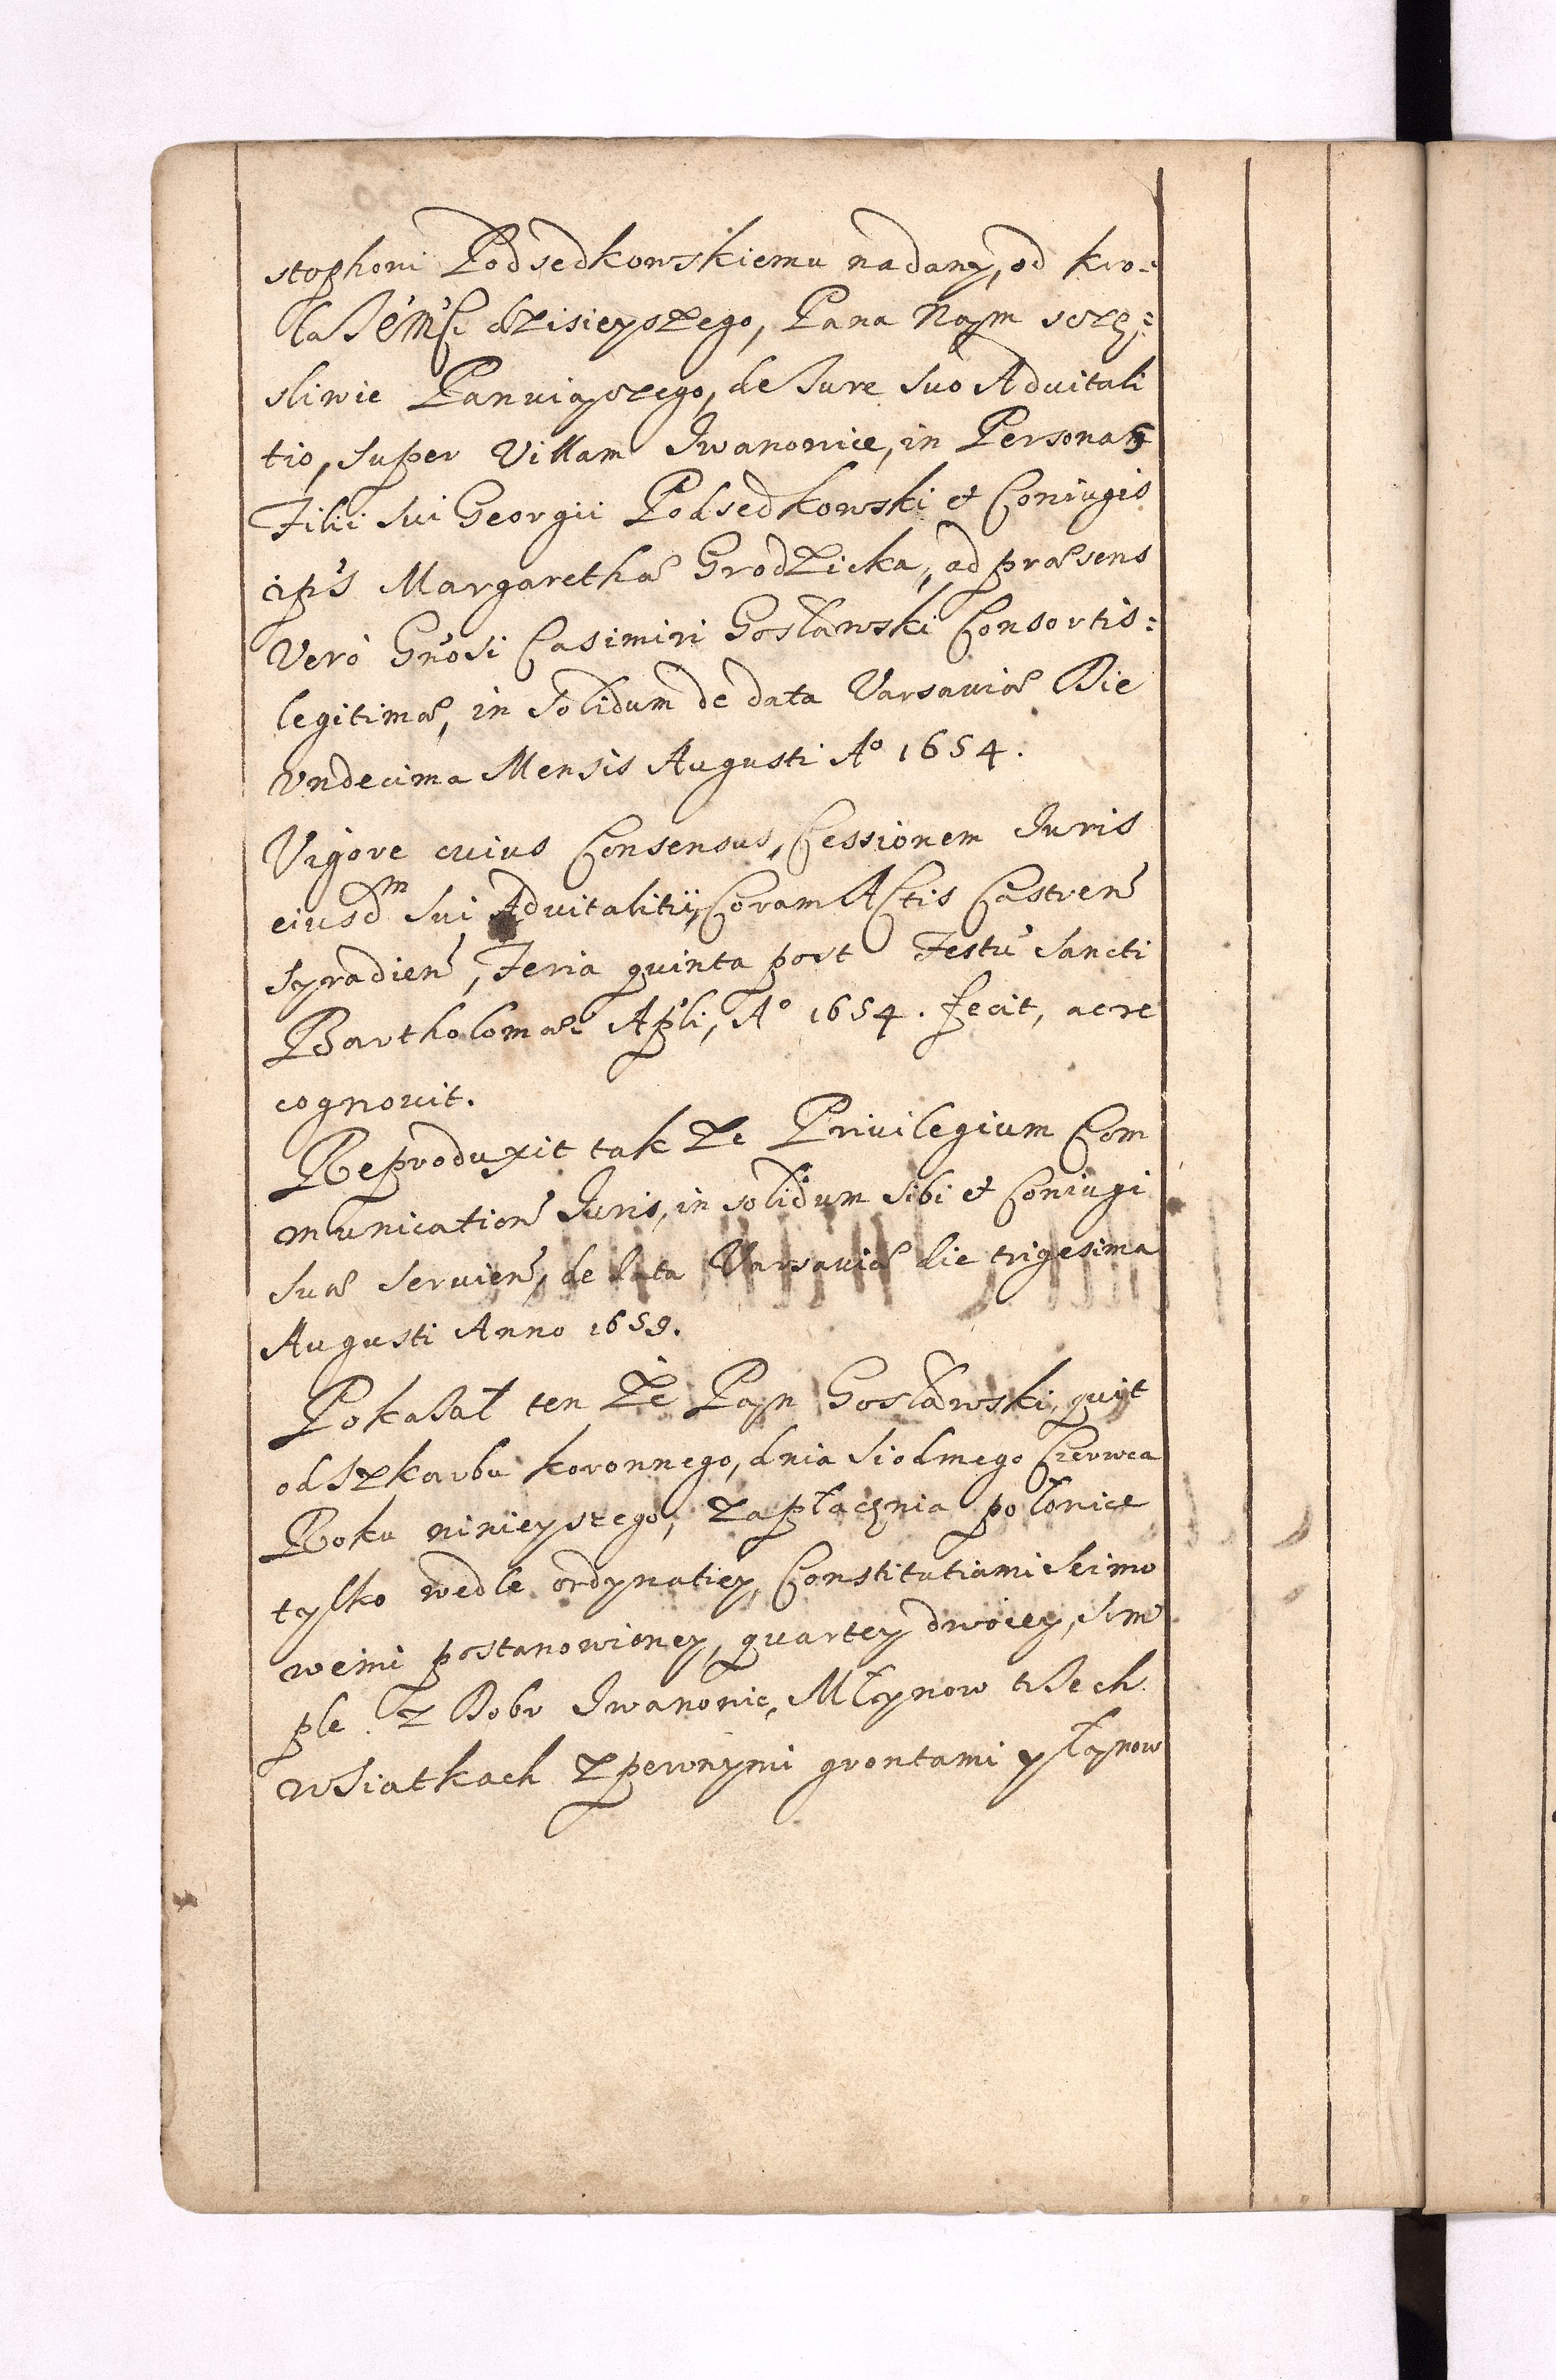 stophoni Podsedkowskiemu nadany, od kro=
la Jem̃sci dzisieyszego, Pana Naym szczę=
sliwie Panuiączego, de Jure suo Aduitali
tio, super Villam Jwanowice, in Personas
Filii sui Georgii Podsedkowski et Coniugis
ip̃s Margarethæ Grodzicka, ad præsens
Vero Gñosi Casimiri Gosławski Consortis=
legitimæ, in solidum de data Varsauiæ Die
Vndecima Mensis Augusti Aº 1654.
Vigore cuius Consensus, Cessionem Juris
eiusdm sui Aduitalitii, Coram Actis Castren̄
Syradien̄, Feria quinta post Festũ Sancti
Bartholomæi Ap̃li, Aº 1654. fecit, ac re
cognouit.
Reproduxit tak ze Priuilegium Com
munication̄ Juris, in solidum sibi et Coniugi
suæ seruien̄, de data Varsauiæ die trigesima
Augusti Anno 1659.
Pokasał ten że Pan Gosławski, quit
od Szkarbu koronnego, dnia siodmego Czerwca
Roku ninieyszego, zapłaczenia połowice
tylko wedle ordynatiey, Constitutiami Seimo
wemi postanowioney, quartey dwoiey, sim
ple z Dobr Jwanowic, Młynow trzech
w Siatkach z pewnymi grontami y łynow